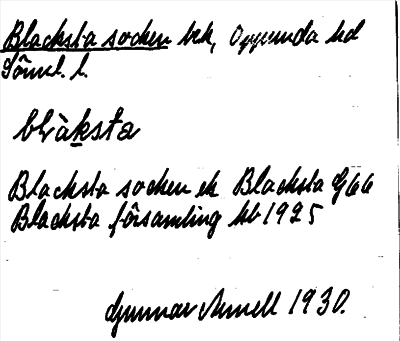 Blacksta socken bek, Oppunda hd
Södml. l.
blàksta
Blacksta socken ek Blacksta G66
Blacksta församling kb 1925
Gunnar Arnell 1930.